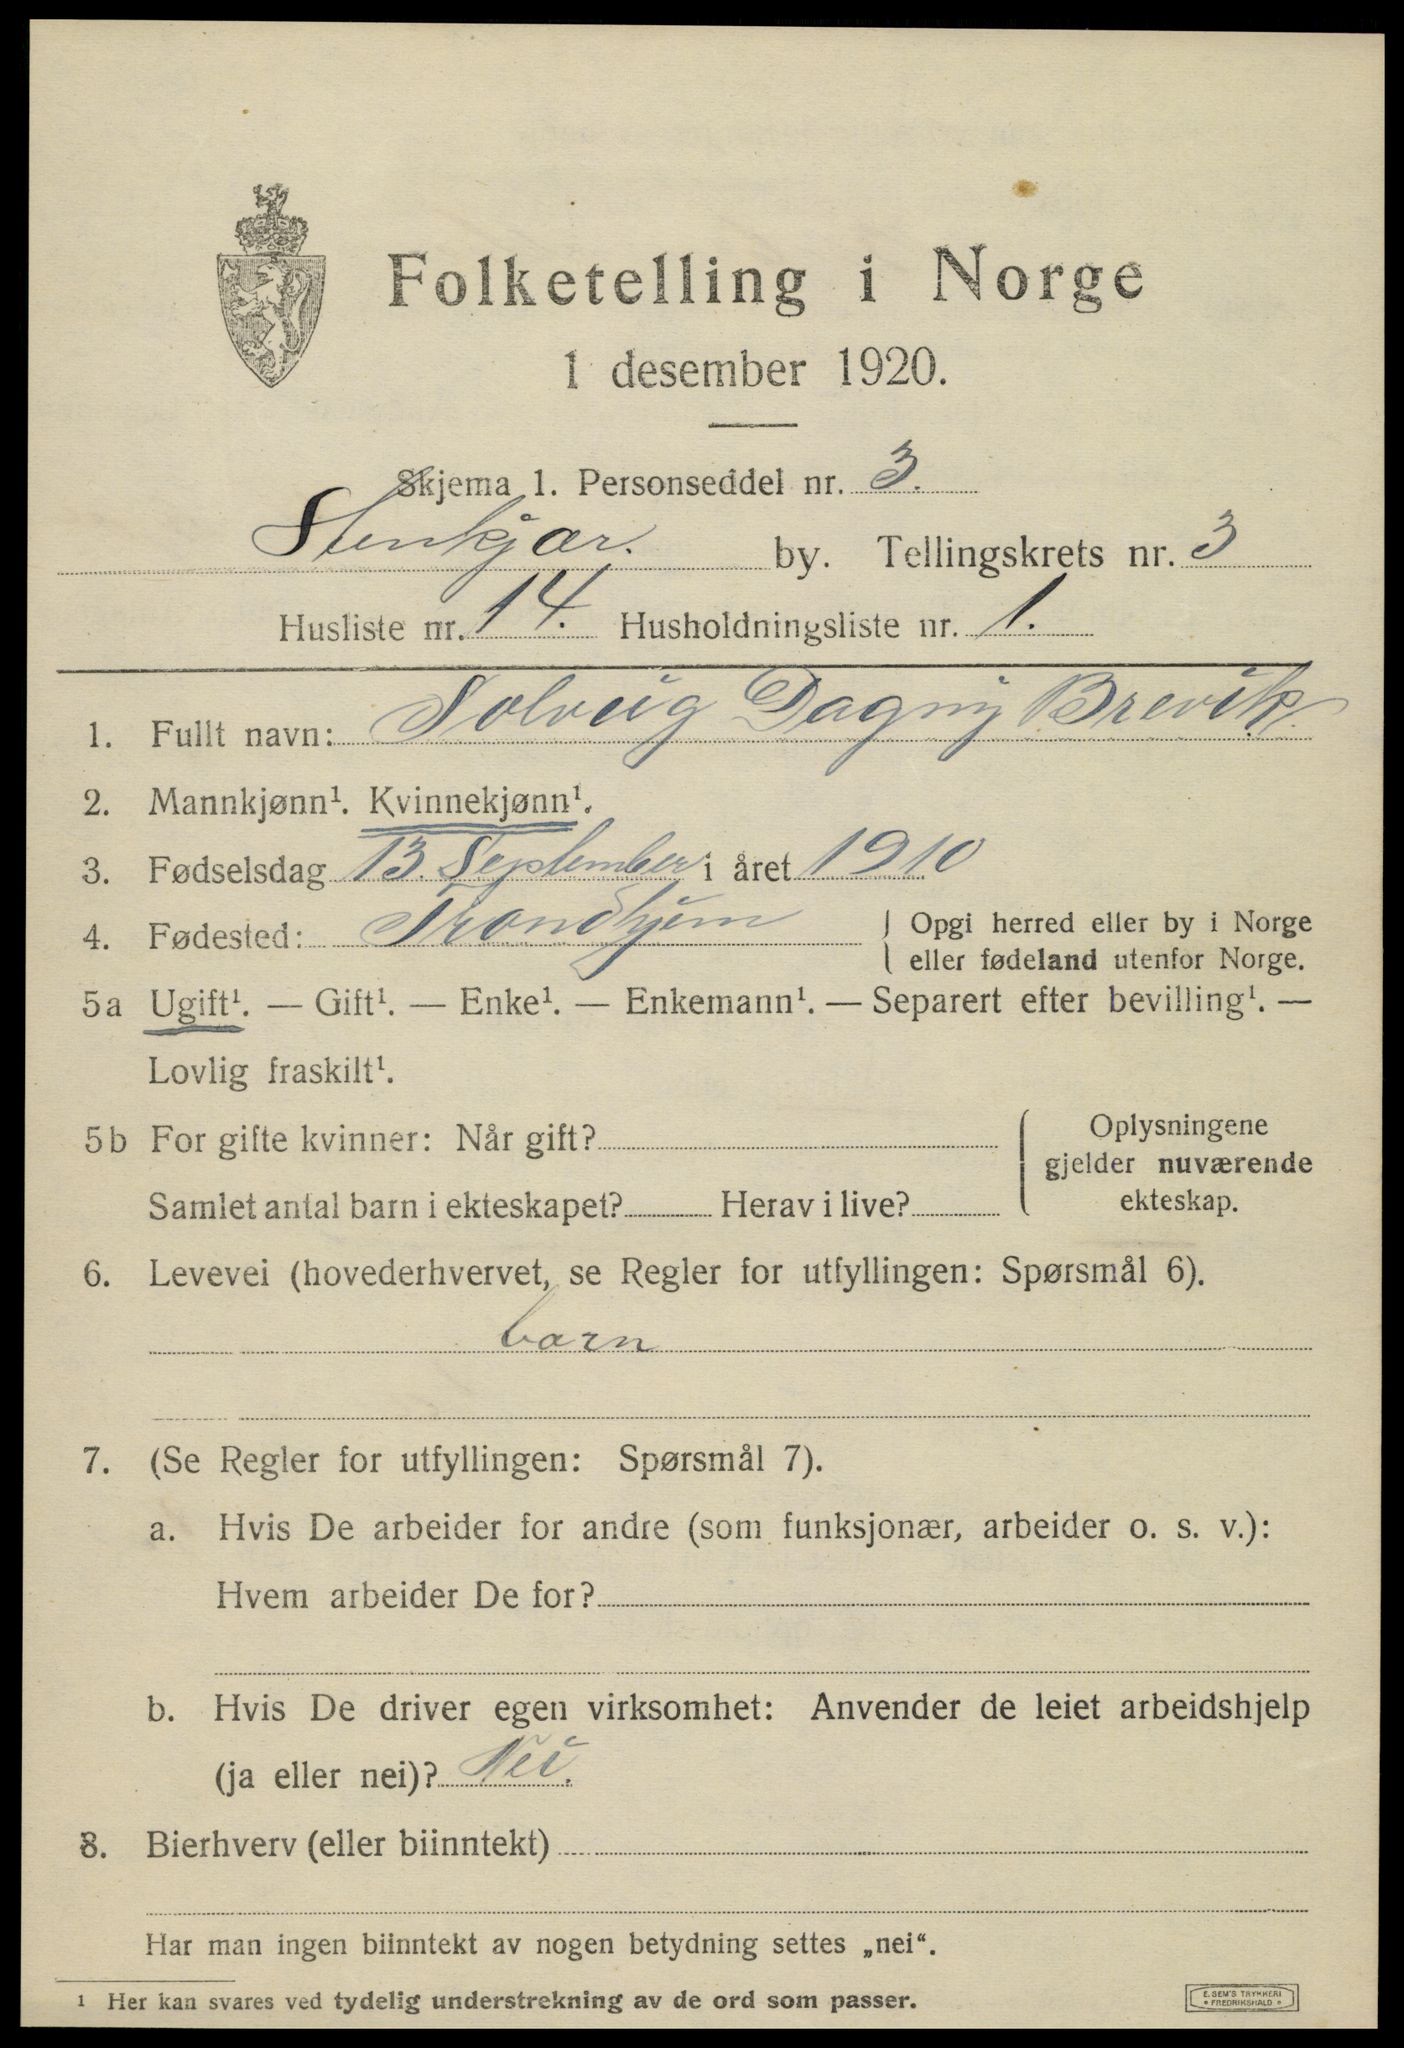 Folketelling i Norge
1 desember 1920.
Skjema 1. Personseddel nr. 3.
Stenkjær. by. Tellingskrets nr. 3
Husliste nr. 14. Husholdningsliste nr. 1.
1. Fullt navn: Solveig Dagny Brevik.
2. Mannkjønn¹. Kvinnekjønn¹.
3. Fødselsdag 13. September i året 1910
4. Fødested: Trondhjem { Opgi herred eller by i Norge
eller fødeland utenfor Norge.
5a Ugift¹. — Gift¹. — Enke¹. — Enkemann¹. — Separert efter bevilling¹. —
Lovlig fraskilt¹.
5b For gifte kvinner: Når gift?
Samlet antal barn i ekteskapet? Herav i live?
{ Oplysningene
gjelder nuværende
ekteskap.
6. Levevei (hovederhvervet, se Regler for utfyllingen: Spørsmål 6).
barn
7. (Se Regler for utfyllingen: Spørsmål 7).
a. Hvis De arbeider for andre (som funksjonær, arbeider o. s. v.):
Hvem arbeider De for?
b. Hvis De driver egen virksomhet: Anvender de leiet arbeidshjelp
(ja eller nei)? Nei.
8. Bierhverv (eller biinntekt)
Har man ingen biinntekt av nogen betydning settes „nei“.
¹ Her kan svares ved tydelig understrekning av de ord som passer.
E. SEM'S TRYKKERI
• FREDRIKSHALD •